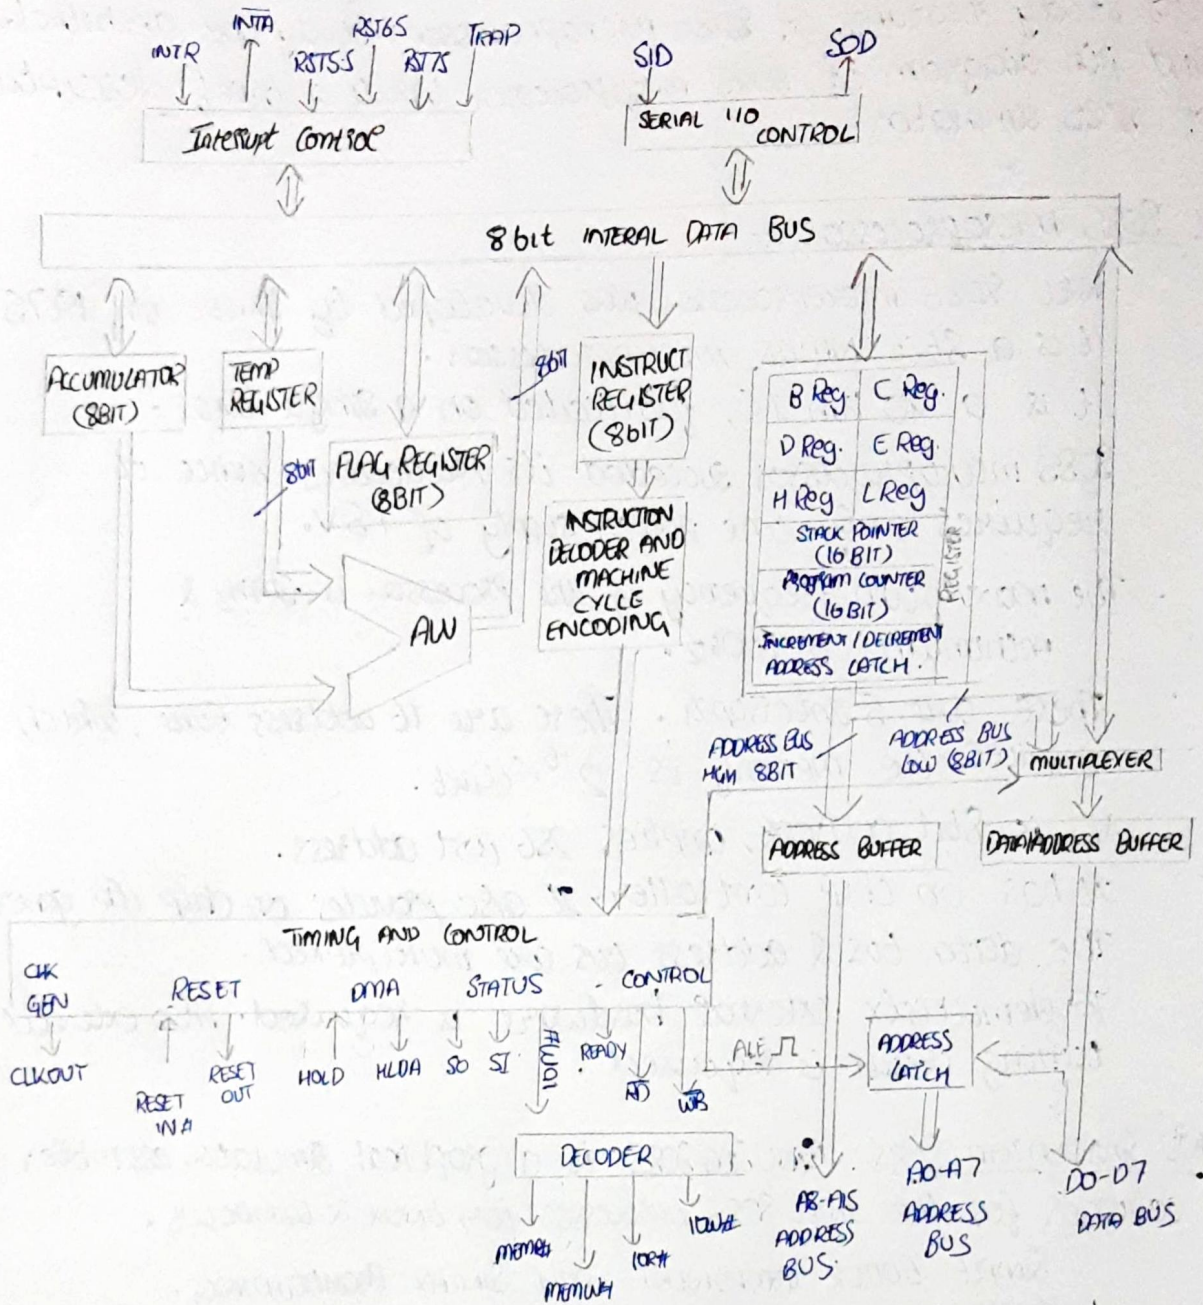 INTR
INTA
RST5.5
RST65
RST75
TRAP
SID
SOD
Interrupt Control
SERIAL I/O
CONTROL
8 bit INTERAL DATA BUS
ACCUMULATOR
(8BIT)
TEMP
REGISTER
8bit
FLAG REGISTER
(8BIT)
8bit
INSTRUCT
REGISTER
(8bit)
B Reg. C Reg.
D Reg. E Reg.
H Reg L Reg
STACK POINTER
(16 BIT)
PROGRAM COUNTER
(16BIT)
INCREMENT/DECREMENT
ADDRESS LATCH.
REGISTER
ALU
INSTRUCTION
DECODER AND
MACHINE
CYLLE
ENCODING
ADDRESS BUS
HIGH 8BIT
ADDRESS BUS
LOW (8BIT)
MULTIPLEXER
ADDRESS BUFFER
DATA/ADDRESS BUFFER
TIMING AND CONTROL
CLK
GEN
RESET
DMA
STATUS
CONTROL
CLKOUT
RESET
IN#
RESET
OUT
HOLD
HLDA
SO
SI
READY
RD
WR
ALE
ADDRESS
LATCH
DECODER
MEMR#
MEMW#
IOR#
IOW#
A8-A15
ADDRESS
BUS.
A0-A7
ADDRESS
BUS
D0-D7
DATA BUS